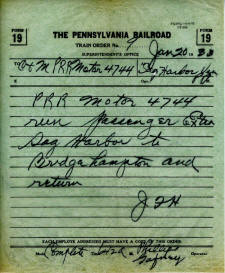 FORM 19
THE PENNSYLVANIA RAILROAD
FORM 19
TRAIN ORDER No. 9
SUPERINTENDENT'S OFFICE
Jan 20
To C&M PRR Motor 4744 Sag Harbor
PRR Motor 4744
run Passenger Extra
Sag Harbor to
Bridgehampton and
return
EACH EMPLOYE ADDRESSED MUST HAVE A COPY OF THIS ORDER
Made Complete Time Operator